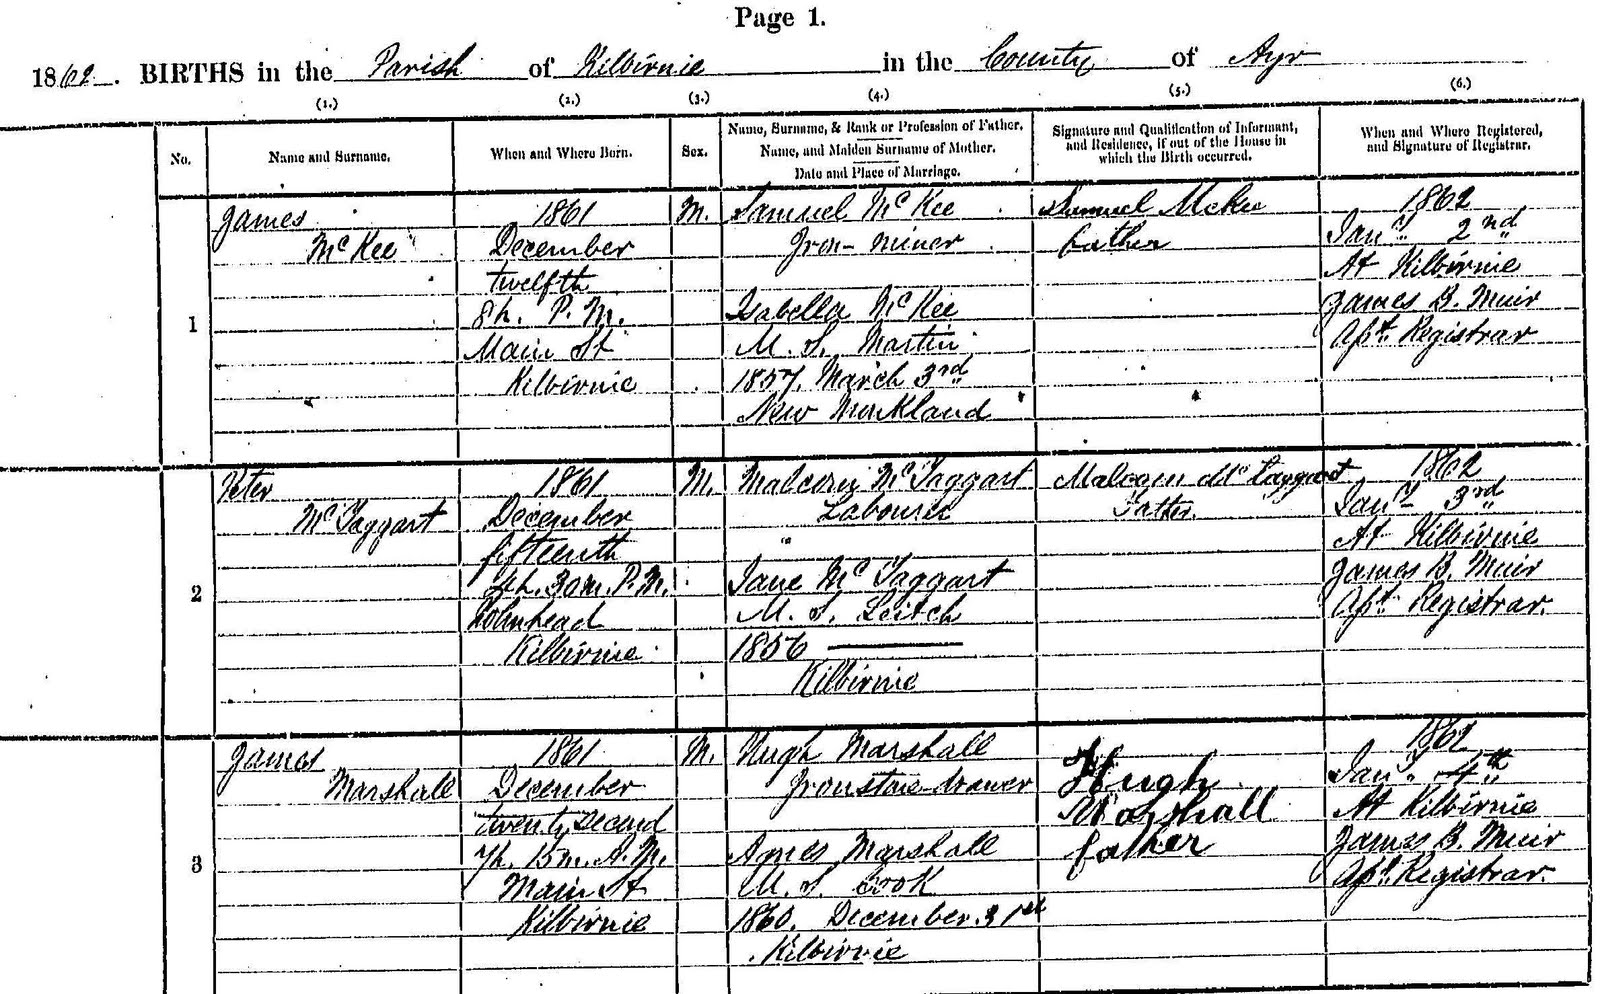 Page 1.
1862. BIRTHS in the Parish of Kilbirnie in the County of Ayr
(1.) (2.) (3.) (4.) (5.) (6.)
No.
Name and Surname.
When and Where Born.
Sex.
Name, Surname, & Rank or Profession of Father.
Name, and Maiden Surname of Mother.
Date and Place of Marriage.
Signature and Qualification of Informant,
and Residence, if out of the House in
which the Birth occurred.
When and Where Registered,
and Signature of Registrar.
1
James
McKee
1861
December
twelfth
8h. P.M.
Main St
Kilbirnie
M.
Samuel McKee
Iron-miner
Isabella McKee
M.S. Martin
1857. March 3rd
New Monkland
Samuel McKee
father
1862
Jany. 2nd
At Kilbirnie
James B. Muir
Asst. Registrar
2
Peter
McTaggart
1861
December
fifteenth
30m. P.M.
Kilbirnie
M.
Malcom McTaggart
Labourer
Jane McTaggart
M.S. Leitch
1856 ———
Kilbirnie
Malcom McTaggart
Father.
1862
Jany. 3rd
At Kilbirnie
James B. Muir
Asst. Registrar.
3
James
Marshall
1861
December
twenty second
7h. 15m. A.M.
Main St
Kilbirnie
M.
Hugh Marshall
Ironstone-drawer
Agnes Marshall
M.S. Cook
1860. December 31st
Kilbirnie
Hugh
Marshall
father
1862
Jany. 4th
At Kilbirnie
James B. Muir
Asst. Registrar.